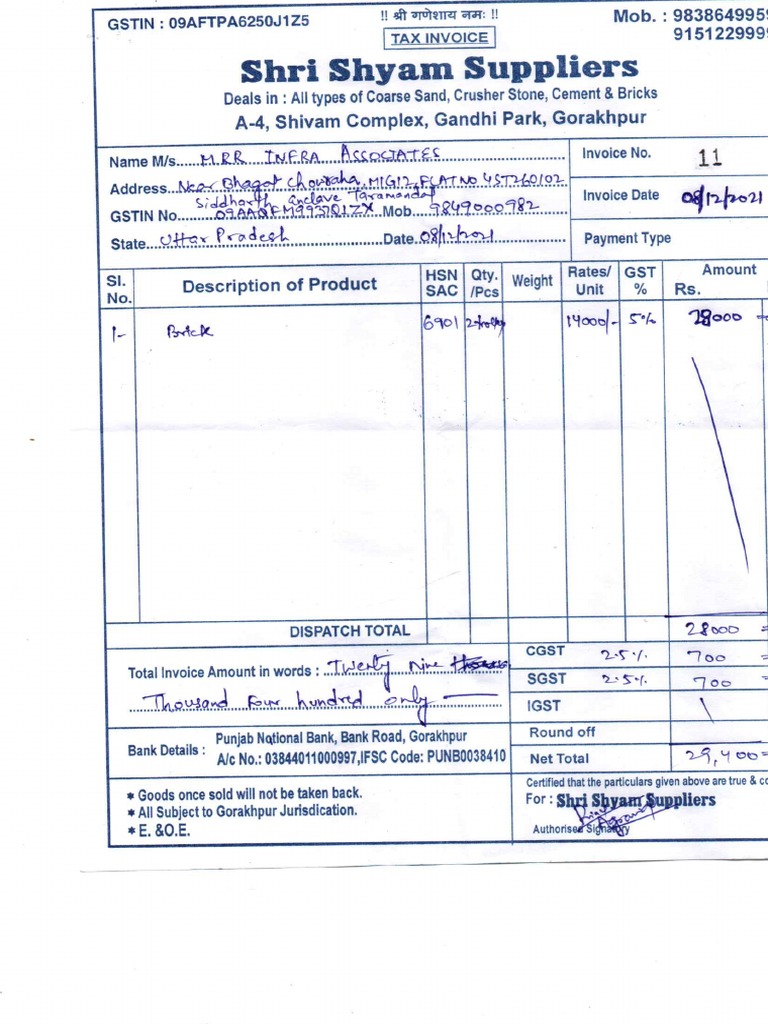 GSTIN : 09AFTPA6250J1Z5
!! श्री गणेशाय नमः !!
Mob. : 983864995
TAX INVOICE
915122999
Shri Shyam Suppliers
Deals in : All types of Coarse Sand, Crusher Stone, Cement & Bricks
A-4, Shivam Complex, Gandhi Park, Gorakhpur
Name M/s. MRR INFRA ASSOCIATES
Invoice No. 11
Address Near Bhagat Chouraha, MIG12, FLAT NO 4ST260102
Siddharth enclave Taramandal
Invoice Date 08/12/2021
GSTIN No. Mob. 9849000982
State Uttar Pradesh Date 08/12/2021
Payment Type
Sl. No. Description of Product HSN SAC Qty. /Pcs Weight Rates/ Unit GST % Amount Rs.
1- Brick 6901 2 14000/- 5% 28000
DISPATCH TOTAL 28000 =
CGST 2.5% 700 =
Total Invoice Amount in words : Twenty Nine
SGST 2.5% 700 =
Thousand Four hundred only
IGST \
Round off
Bank Details : Punjab National Bank, Bank Road, Gorakhpur
A/c No.: 03844011000997,IFSC Code: PUNB0038410
Net Total 29,400=
Certified that the particulars given above are true & co
* Goods once sold will not be taken back.
For : Shri Shyam Suppliers
* All Subject to Gorakhpur Jurisdication.
* E. &O.E.
Authorised Signatory